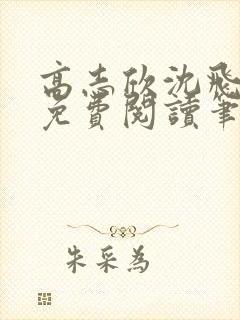 高志欣沈飛
免費閱讀筆
朱采為